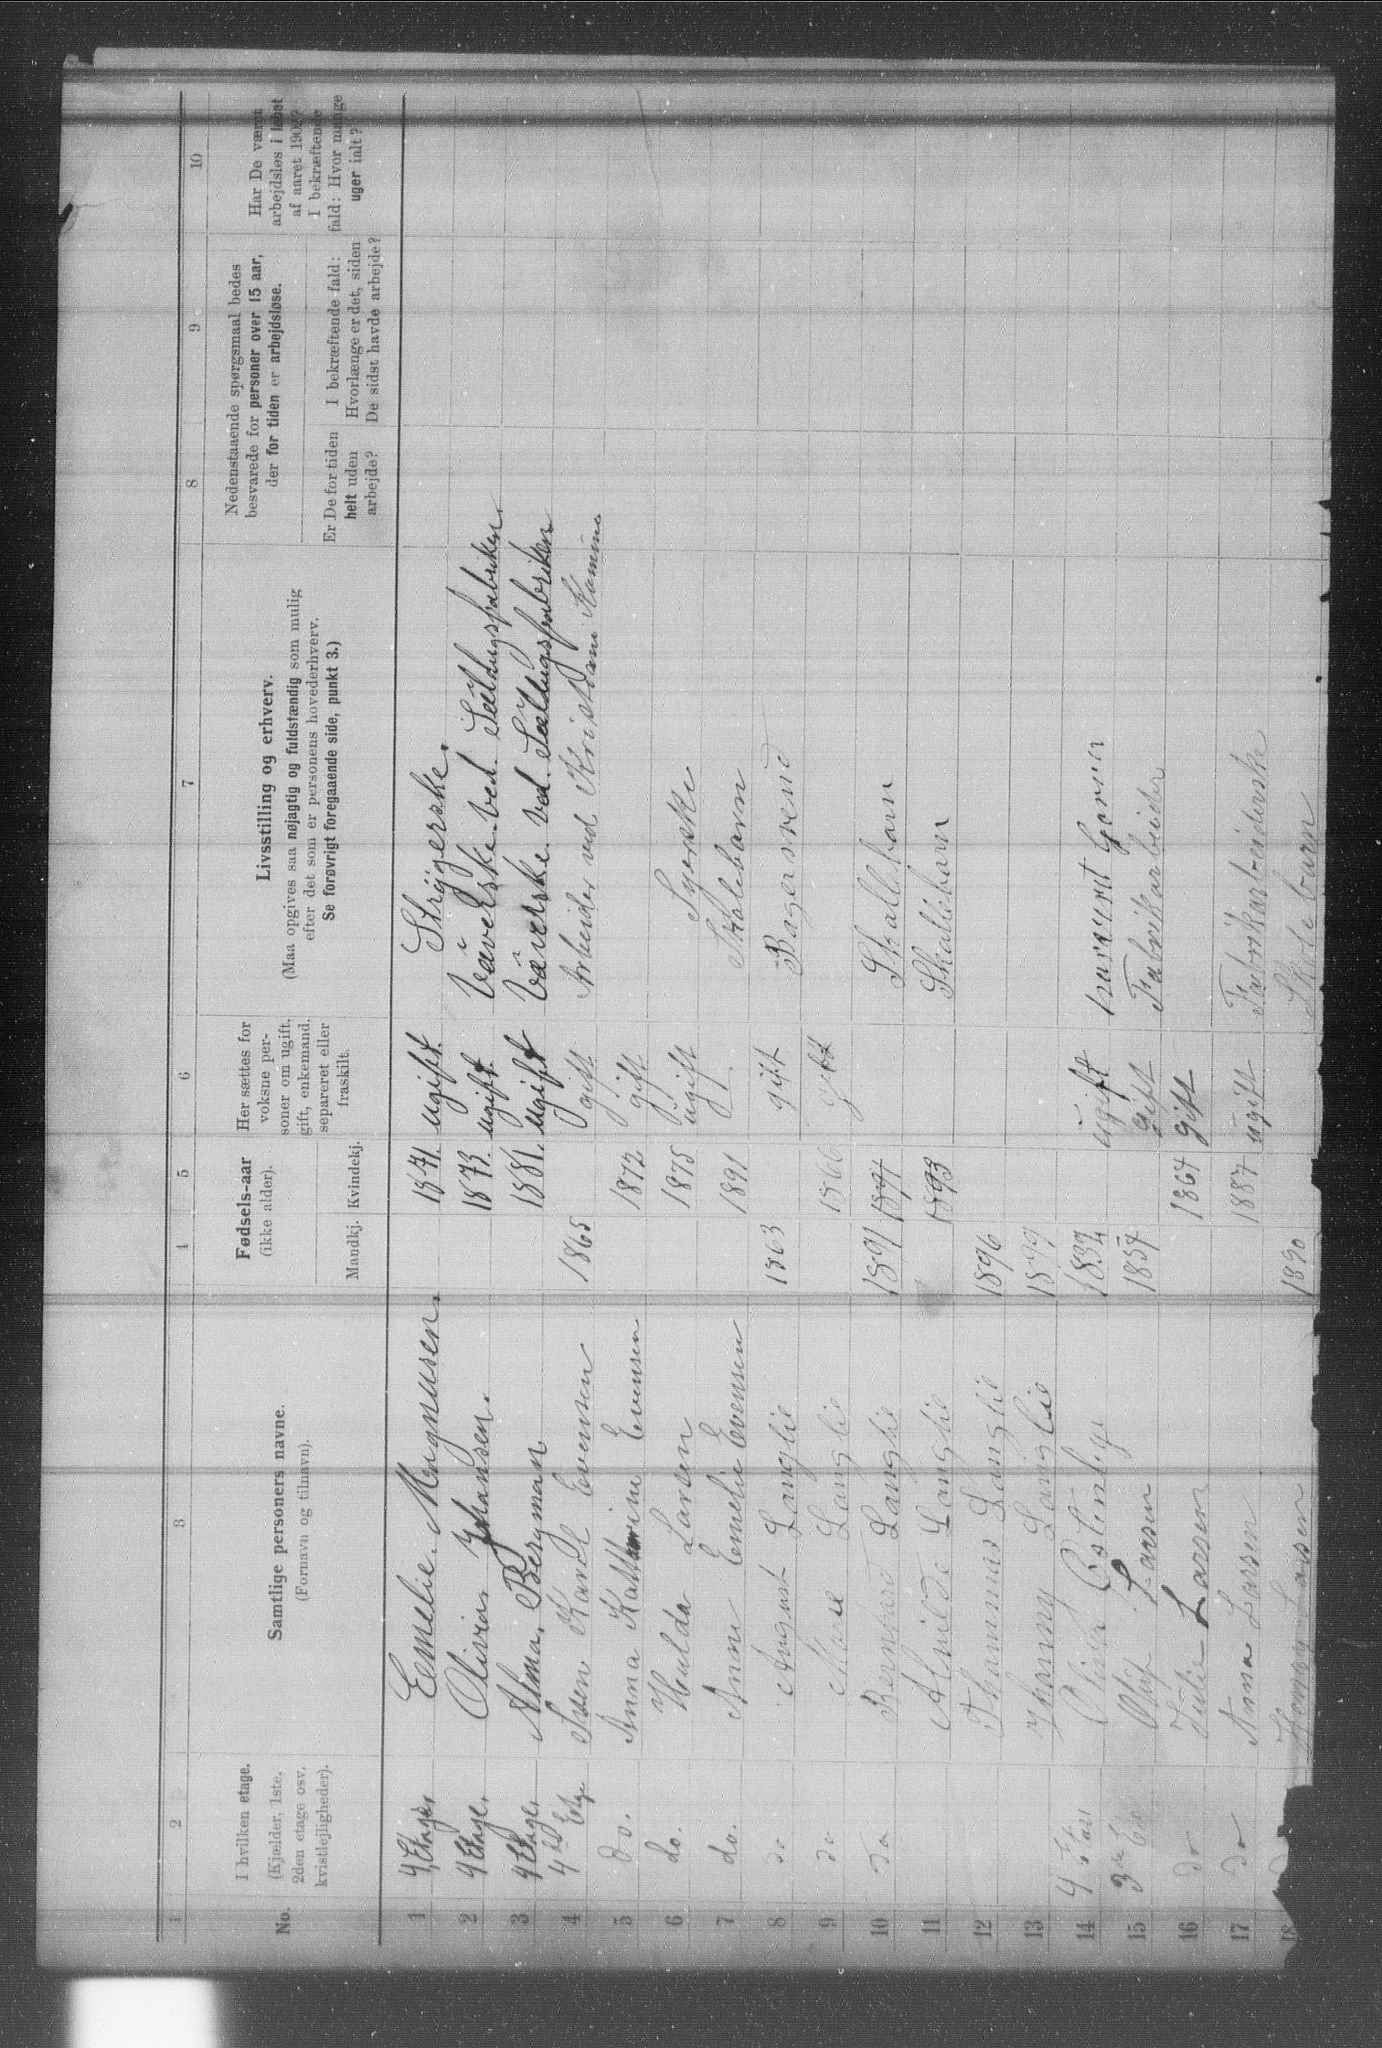 1 2 3 4 5 6 7 8 9 10
No.
I hvilken etage.
(Kjælder, 1ste,
2den etage osv.
kvistlejligheder).
Samtlige personers navne.
(Fornavn og tilnavn).
Fødsels-aar
(ikke alder).
Mandkj. Kvindekj.
Her sættes for
voksne per-
soner om ugift,
gift, enkemand,
separeret eller
fraskilt.
Livsstilling og erhverv.
(Maa opgives saa nøjagtig og fuldstændig som mulig
efter det som er personens hovederhverv.
Se forøvrigt foregaaende side, punkt 3.)
Nedenstaaende spørgsmaal bedes
besvarede for personer over 15 aar,
der for tiden er arbejdsløse.
Er De for tiden
helt uden
arbejde?
I bekræftende fald:
Hvorlænge er det, siden
De sidst havde arbejde?
Har De været
arbejdsløs i løbet
af aaret 190
I bekræftende
fald: Hvor mange
uger ialt?
1 4 Etage. Emelie. Magnusen. 1871. ugift. Strygerske.
2 4 Etage. Olivia Johansen. 1873. ugift. Væverske ved. Seildugsfabriken.
3 4 Etage. Alma, Bergman 1881. ugift Væverske ved. Seildugsfabriken
4 4de Etge Karl Evensen 1865 gift Arbeider ved Kristiani Komune
5 do. Anna Kathrine Evensen 1872 gift
6 do. Hulda Larsen 1875 ugift Syerske
7 do. Anna Emelie Evensen 1891 Skolebarn
8 do August Langlie 1863 gift Bagersvend
9 do Marie Langlie 1866 gift
10 do Bernhard Langlie 1891 Skallebarn
11 Alvilde Langlie 1893 Skallebarn
12 Thammis Langlie 1896
13 Langlie 1899
14 4 ugift Garver
15 3 Oluf Larsen 1857 gift Fabrikarbeider
16 do Julie Larsen 1864 gift
17 do Anna Larsen 1887 ugift Fabrikarbeiderske
18 Larsen 1890 Skolebarn